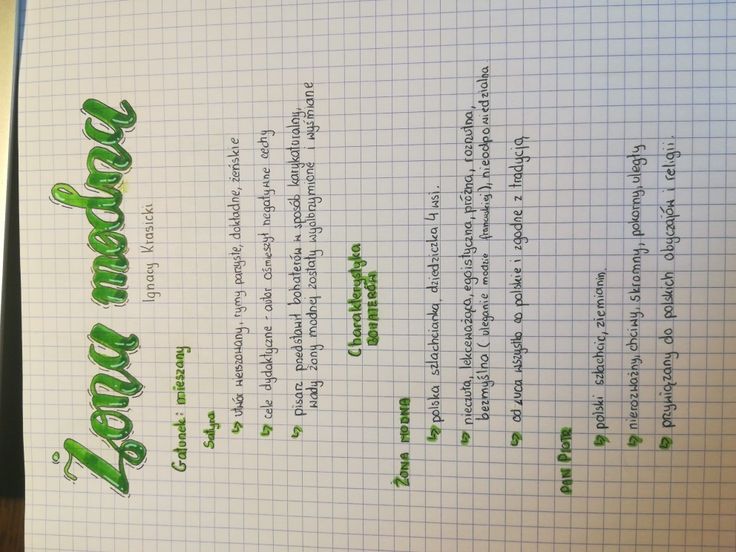 Żona modna
Ignacy Krasicki
Gatunek: mieszany
Satyra
↳ utwór wierszowany, rymy parzyste, dokładne, żeńskie
↳ cele dydaktyczne - autor ośmieszył negatywne cechy
↳ pisarz przedstawił bohaterów w sposób karykaturalny,
wady żony modnej zostały wyolbrzymione i wyśmiane
Charakterystyka
BOHATERÓW
ŻONA MODNA
↳ polska szlachcianka, dziedziczka 4 wsi.
↳ nieczuła, lekceważąca, egoistyczna, próżna, rozrzutna,
bezmyślna (uleganie modzie francuskiej), nieodpowiedzialna
↳ odrzuca wszystko co polskie i zgodne z tradycją
PAN PIOTR
↳ polski szlachcic, ziemianin,
↳ nierozważny, chciwy, skromny, pokorny, uległy
↳ przywiązany do polskich obyczajów i religii.